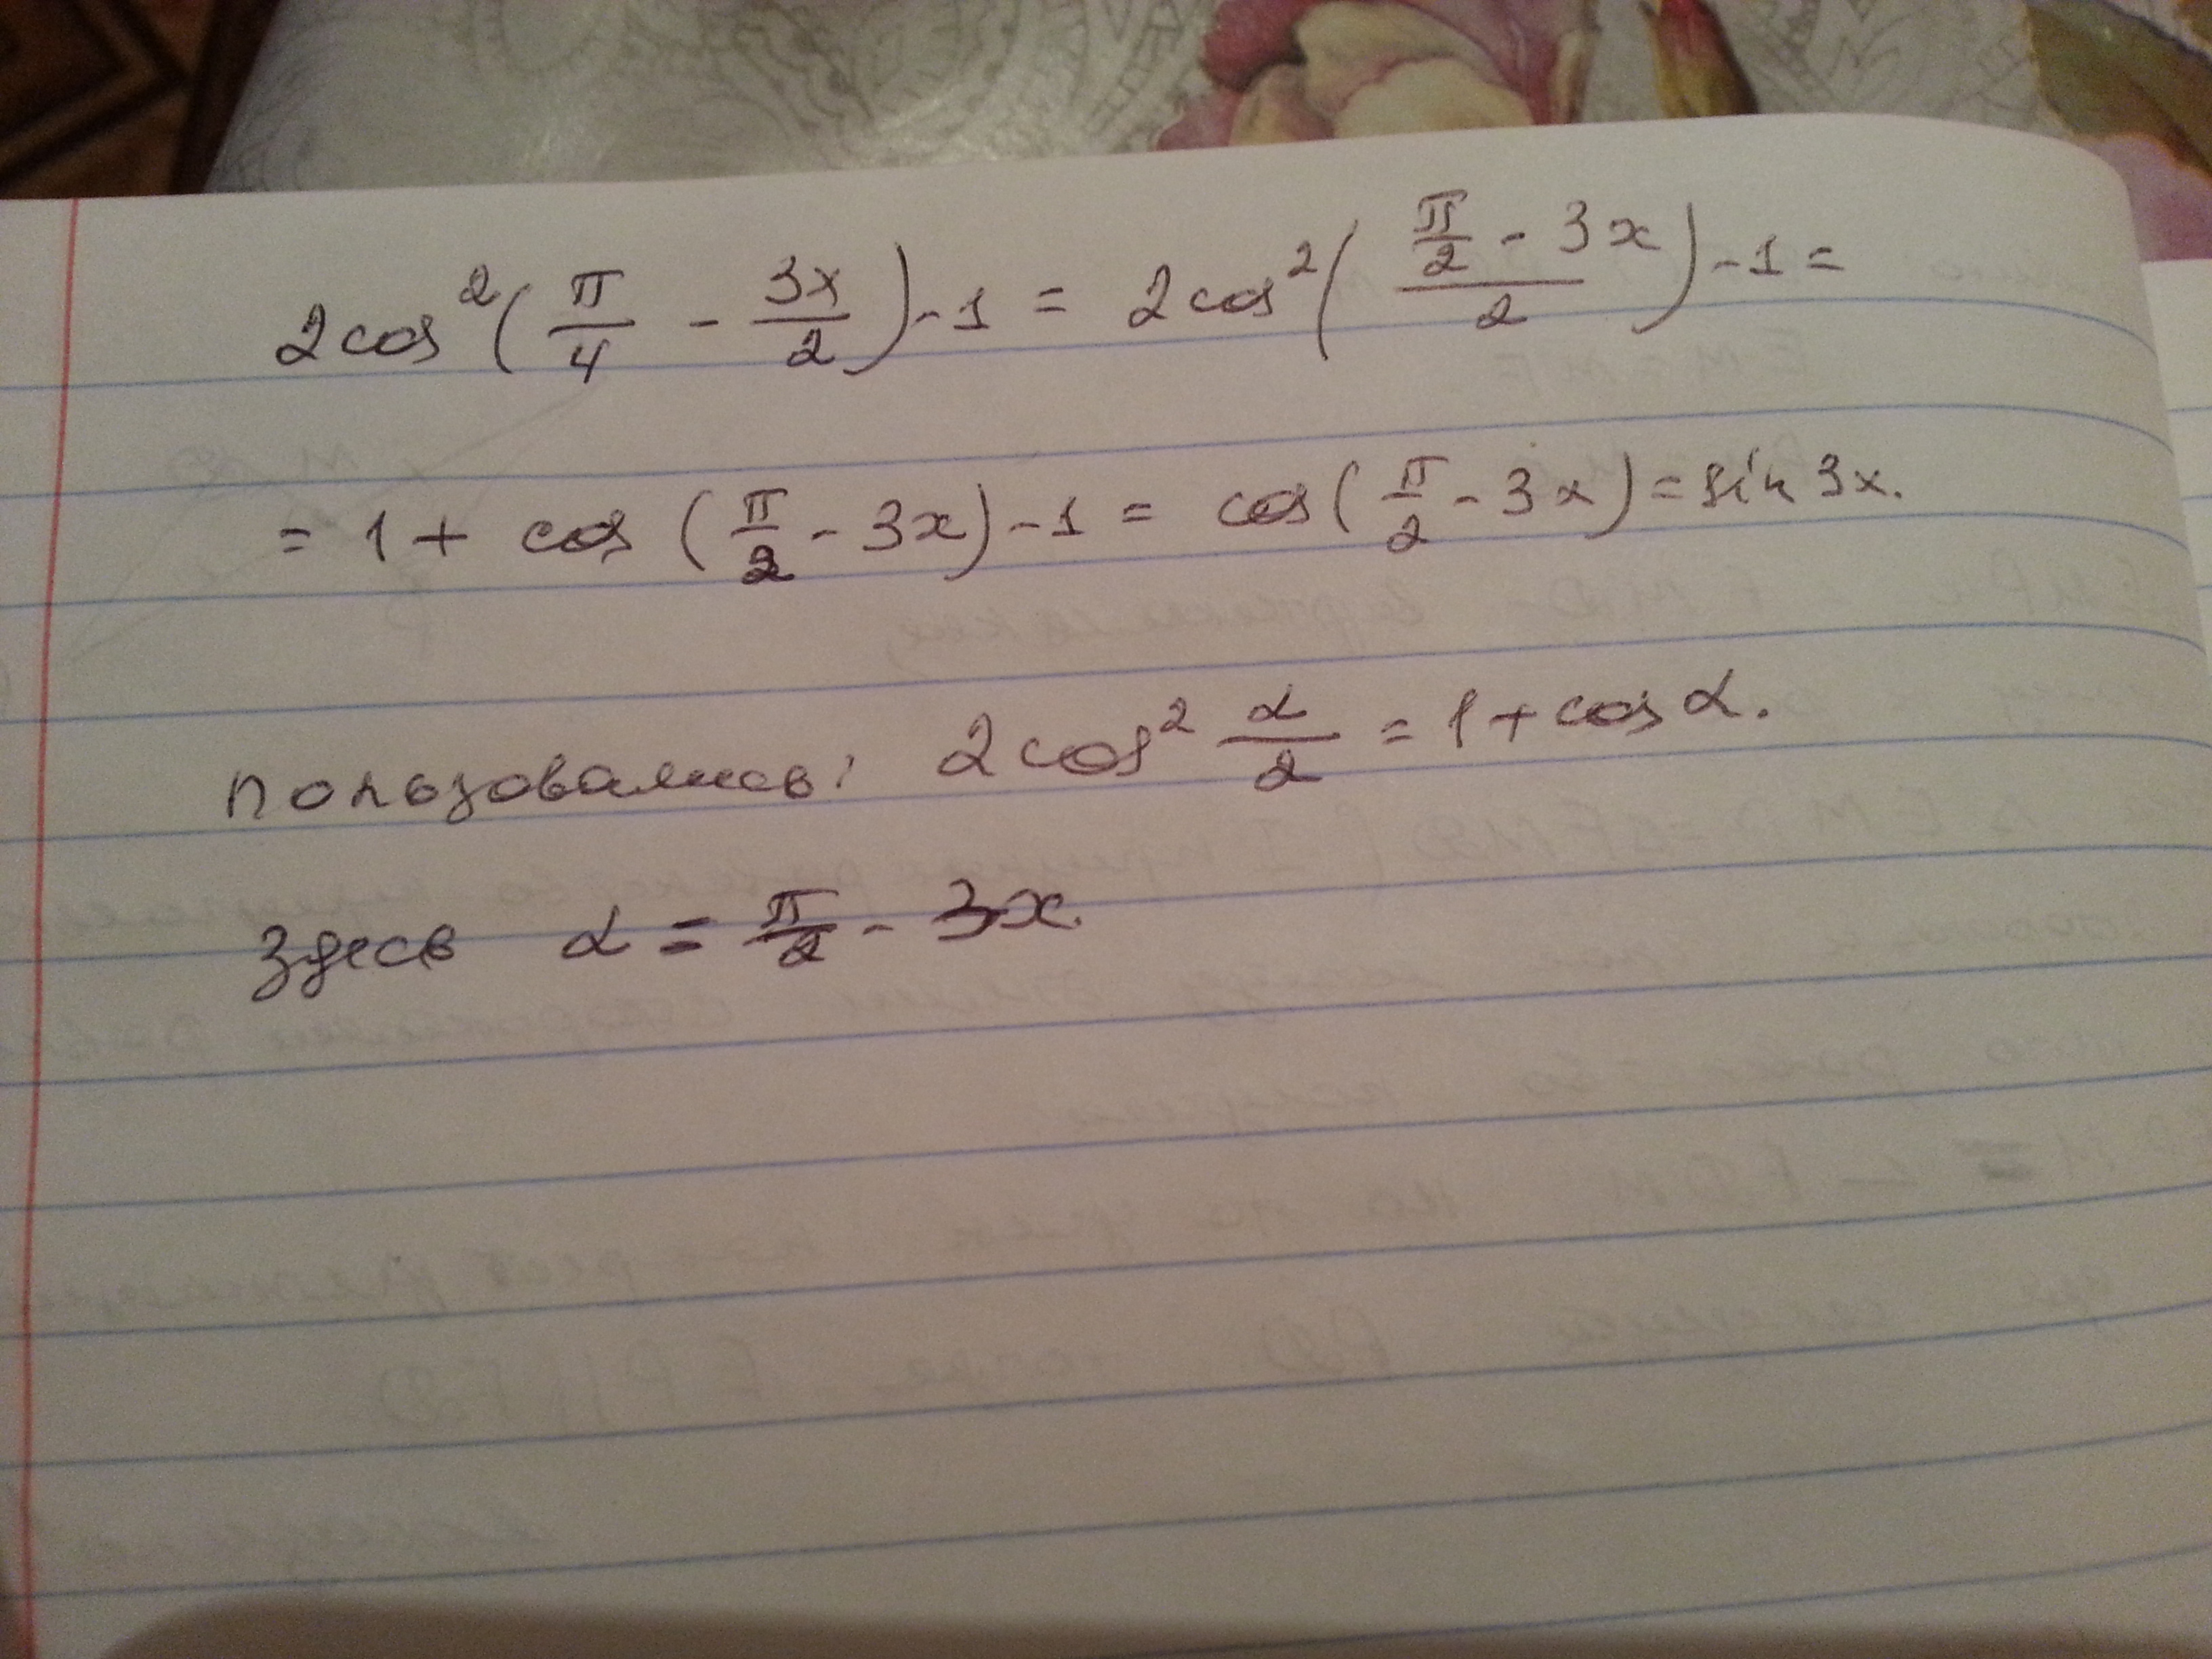 2cos²(π/4 - 3x/2) - 1 = 2cos²((π/2 - 3x)/2) - 1 =
= 1 + cos(π/2 - 3x) - 1 = cos(π/2 - 3x) = sin 3x.
пользовались: 2cos² α/2 = 1 + cos α.
здесь α = π/2 - 3x.